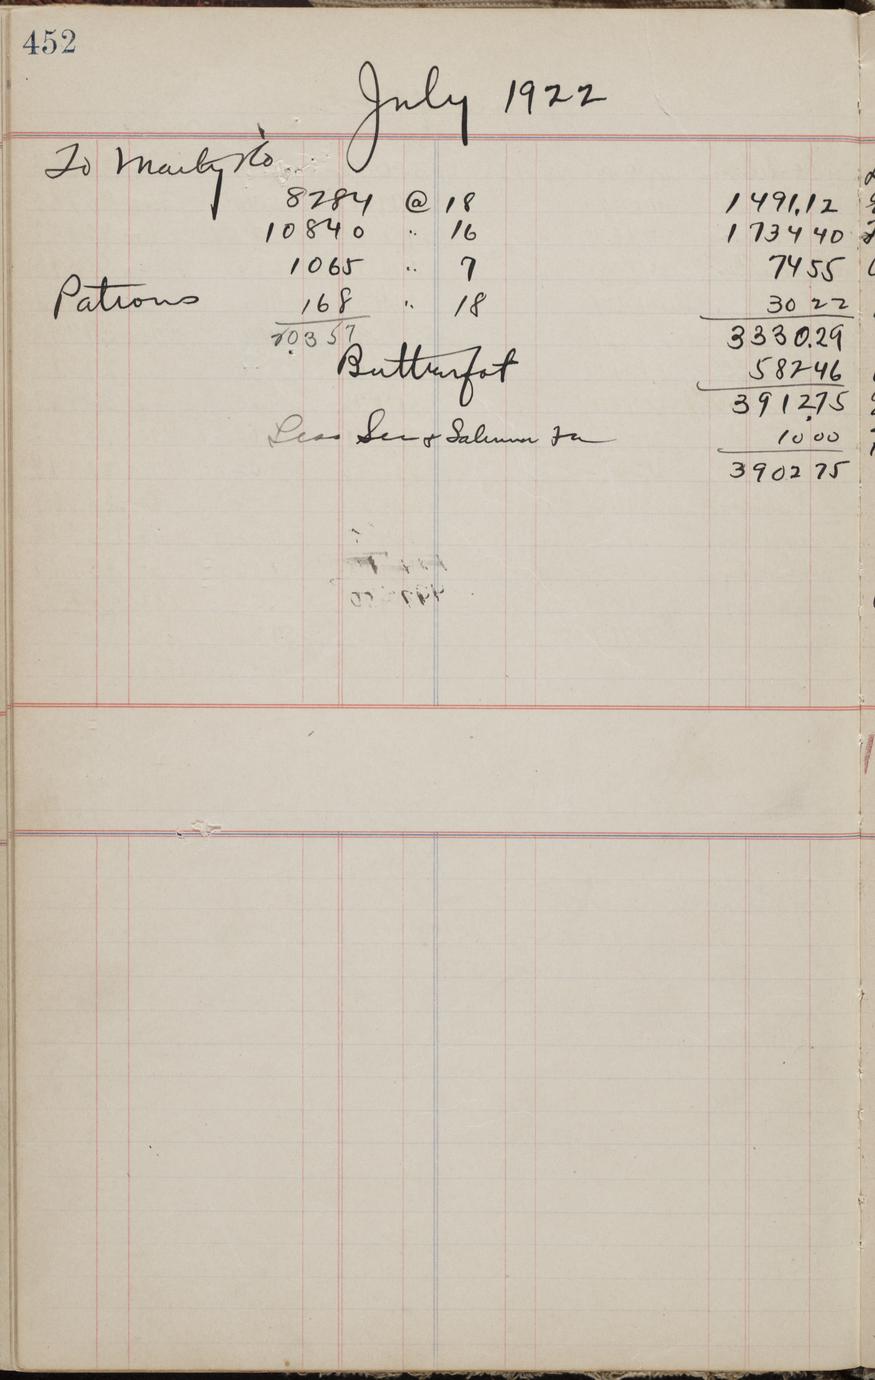 452
July 1922
To Marty & Co
8284 @ 18 1491.12
10840 " 16 1734 40
1065 " 7 74 55
Patrons 168 " 18 30 22
20357 3330.29
Butterfat 582 46
3912.75
Less Sec & Salesman 10 00
3902 75